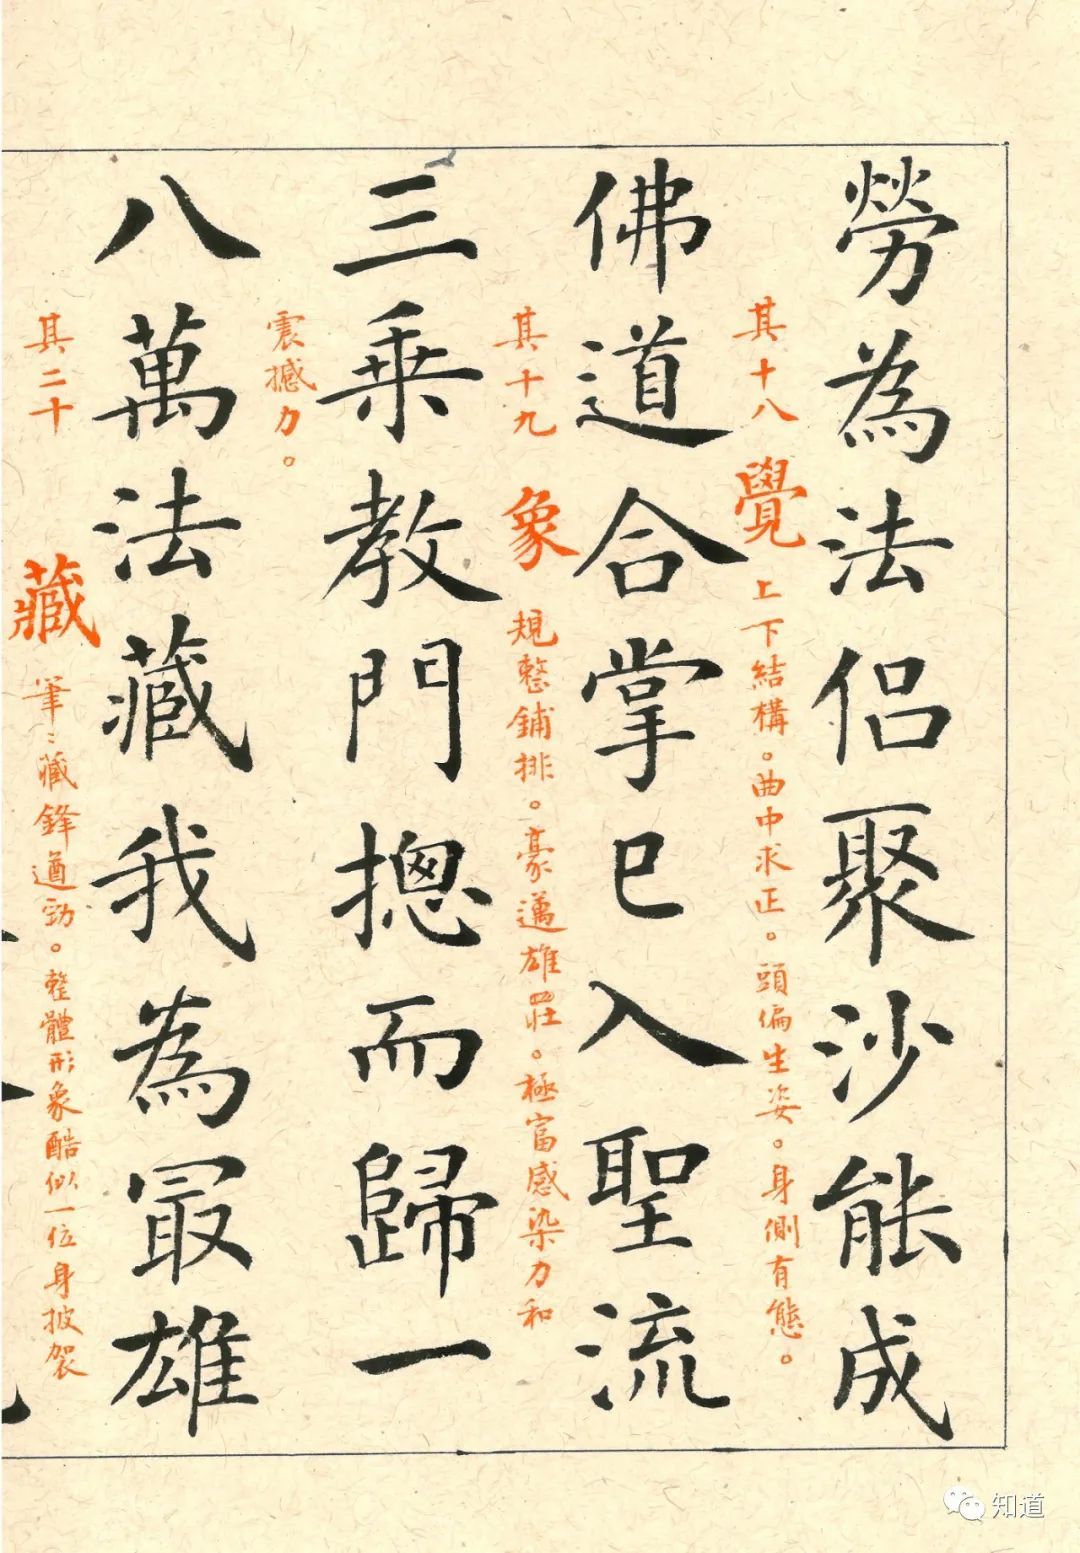 勞為法侣聚沙能成
其十八 覺 上下結構。曲中求正。頭偏生姿。身側有態。
佛道合掌已入聖流
其十九 象 規整鋪排。豪邁雄壯。極富感染力和
三乗教門摠而歸一
震撼力。
八萬法藏我為冣雄
其二十 藏 筆〻藏鋒遒勁。整體形象酷似一位身披袈
知道